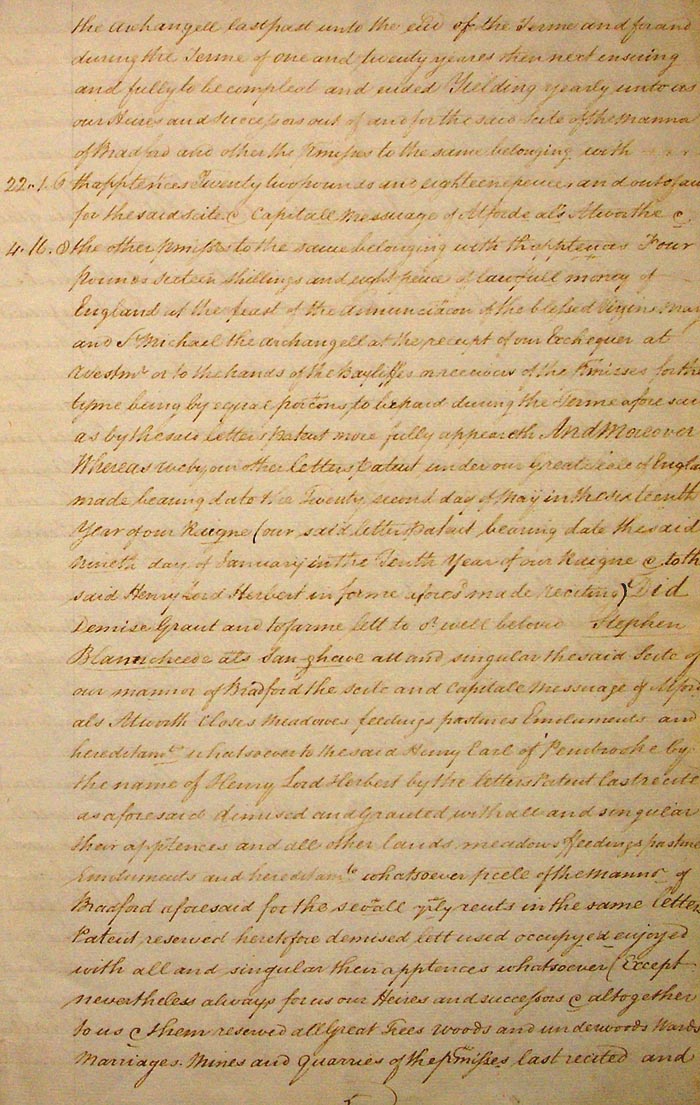 the Archangell last past unto the end of the Terme and for and
during the Terme of one and twenty yeares then next ensuing
and fully to be compleat and ended Yielding yearly unto us
our Heires and Successors out of and for the said Scite of the Mannor
of Bradford and other the Pmisses to the same belonging with
22. 1. 6 thapptences Twenty two pounds and eighteene pence and out of and
for the said scite & Capitall Messuage of Alforde als Atworthe &
4. 16. 8 the other Pmisses to the same belonging with thapptences Four
pounds sixteen shillings and eight pence of lawfull money of
England at the feast of the Annunciacon of the blessed Virgin Mary
and St. Michael the Archangell at the receipt of our Exchequer at
Westmr. or to the hands of the Bayliffes or receivors of the Pmisses for the
tyme being by equal porcons to be paid during the Terme aforesaid
as by the said letters Patent more fully appeareth And Moreover
Whereas we by our other letters Patent under our Great Seale of England
made bearing date the Twenty second day of May in the sixteenth
Year of our Reigne (our said letters Patent bearing date the said
nineth day of January in the Tenth Year of our Reigne & to the
said Henry Lord Herbert in forme aforesd. made reciting) Did
Demise Grant and to farme lett to or. well beloved Stephen
als all and singular the said Scite of
our mannor of Bradford the scite and Capitall Messuage of Alford
als Atworth Closes Meadowes feedings pastures Emoluments and
hereditamts. whatsoever to the said Henry Earl of Pembrooke by
the name of Henry Lord Herbert by the letters Patent last recited
as aforesaid dimised and Granted with all and singular
their apptences and all other lands meadows feedings pastures
Emoluments and hereditamts. whatsoever pcele of the Mannor of
Bradford aforesaid for the sevrall yrly rents in the same letters
Patent reserved heretofore demised lett used occupyed enjoyed
with all and singular their apptences whatsoever (Except
nevertheless always for us our Heires and successors & altogether
to us & them reserved all Great Trees Woods and underwoods Wards
Marriages Mines and Quarries of the Pmisses last recited and